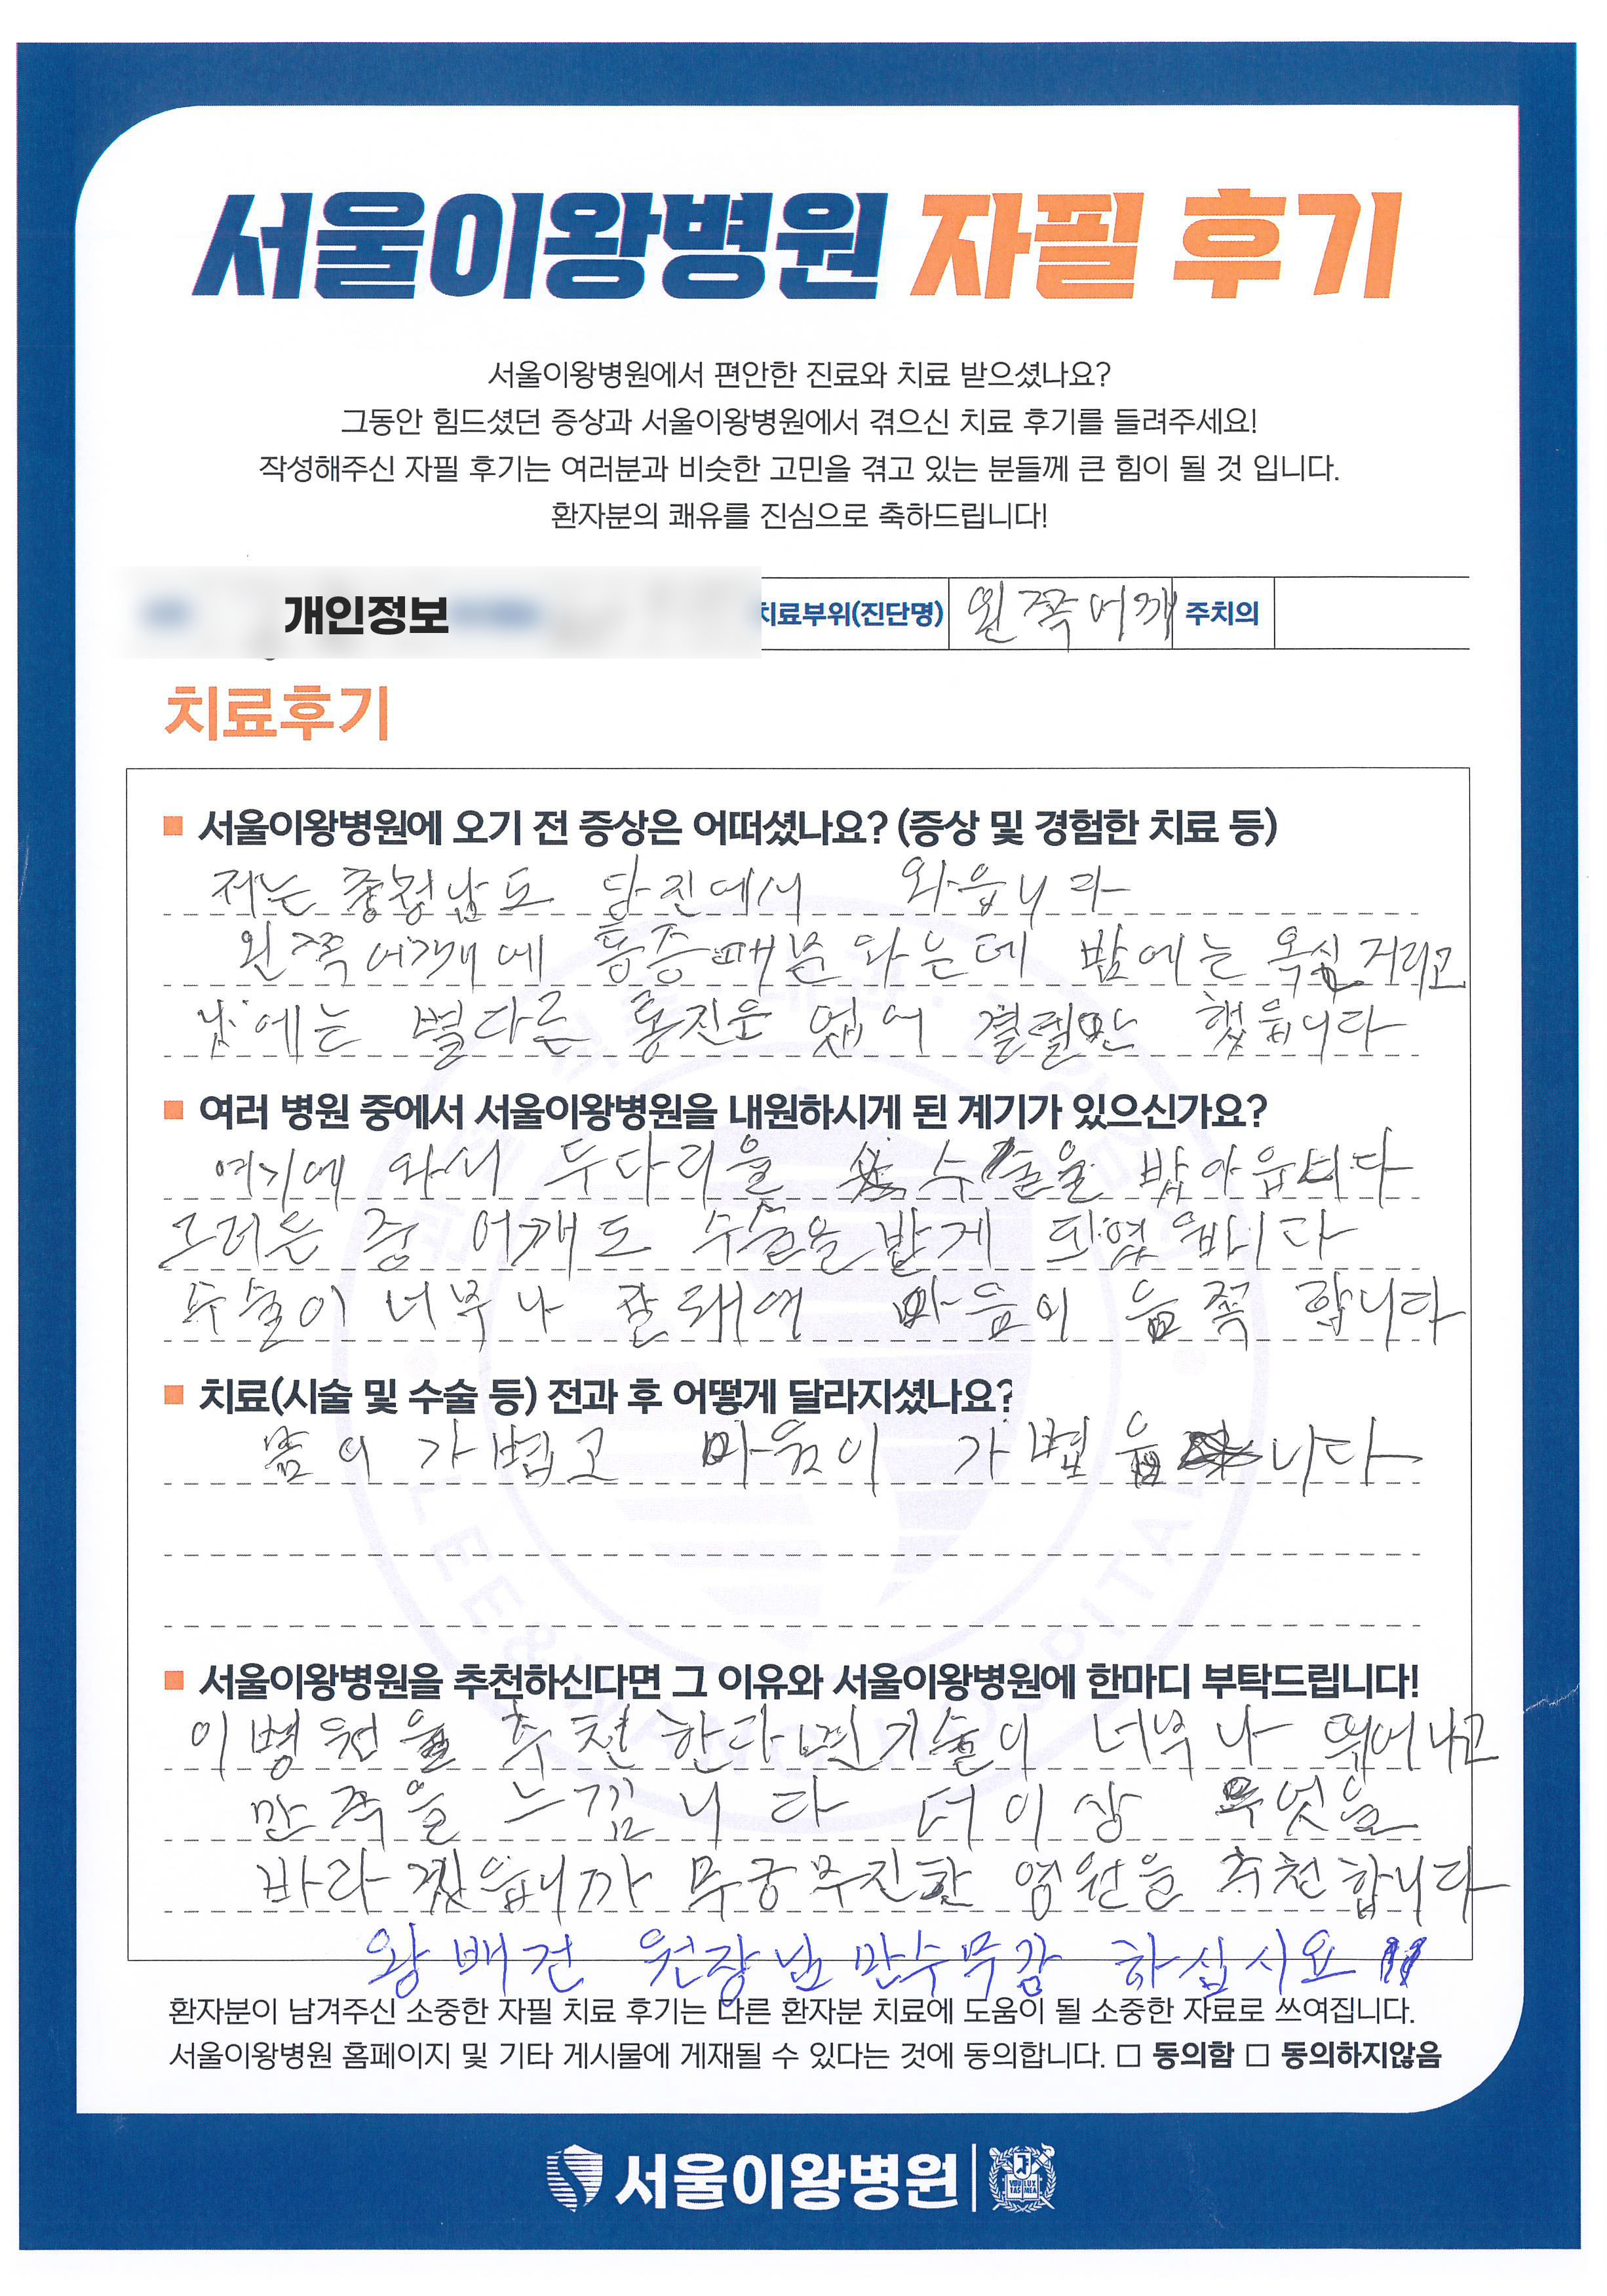 서울이왕병원 자필 후기
서울이왕병원에서 편안한 진료와 치료 받으셨나요?
그동안 힘드셨던 증상과 서울이왕병원에서 겪으신 치료 후기를 들려주세요!
작성해주신 자필 후기는 여러분과 비슷한 고민을 겪고 있는 분들께 큰 힘이 될 것 입니다.
환자분의 쾌유를 진심으로 축하드립니다!
개인정보 치료부위(진단명) 왼쪽어깨 주치의
치료후기
서울이왕병원에 오기 전 증상은 어떠셨나요? (증상 및 경험한 치료 등)
저는 충청남도 당진에서 와읍니다
왼쪽 어개에 통증때문 와는데 밤에는 욱실거리고
낮에는 별다른 통진은 없어 결렬만 했읍니다
여러 병원 중에서 서울이왕병원을 내원하시게 된 계기가 있으신가요?
여기에 와서 두다리을 수술을 받아읍니다
그러든 중 어개도 수술을 받게 되었읍니다
수술이 너무나 잘돼어 마음이 흡쪽 합니다
치료(시술 및 수술 등) 전과 후 어떻게 달라지셨나요?
몸이 가볍고 마음이 가볍읍니다
서울이왕병원을 추천하신다면 그 이유와 서울이왕병원에 한마디 부탁드립니다!
이병원을 추천한다면 기술이 너무나 뛰어나고
만족을 느낌니다 더이상 무엇을
바라겠읍니까 무궁무진한 영원을 추천합니다
왕배건 원장님 만수무강 하십시요 !!
환자분이 남겨주신 소중한 자필 치료 후기는 다른 환자분 치료에 도움이 될 소중한 자료로 쓰여집니다.
서울이왕병원 홈페이지 및 기타 게시물에 게재될 수 있다는 것에 동의합니다. □ 동의함 □ 동의하지않음
서울이왕병원